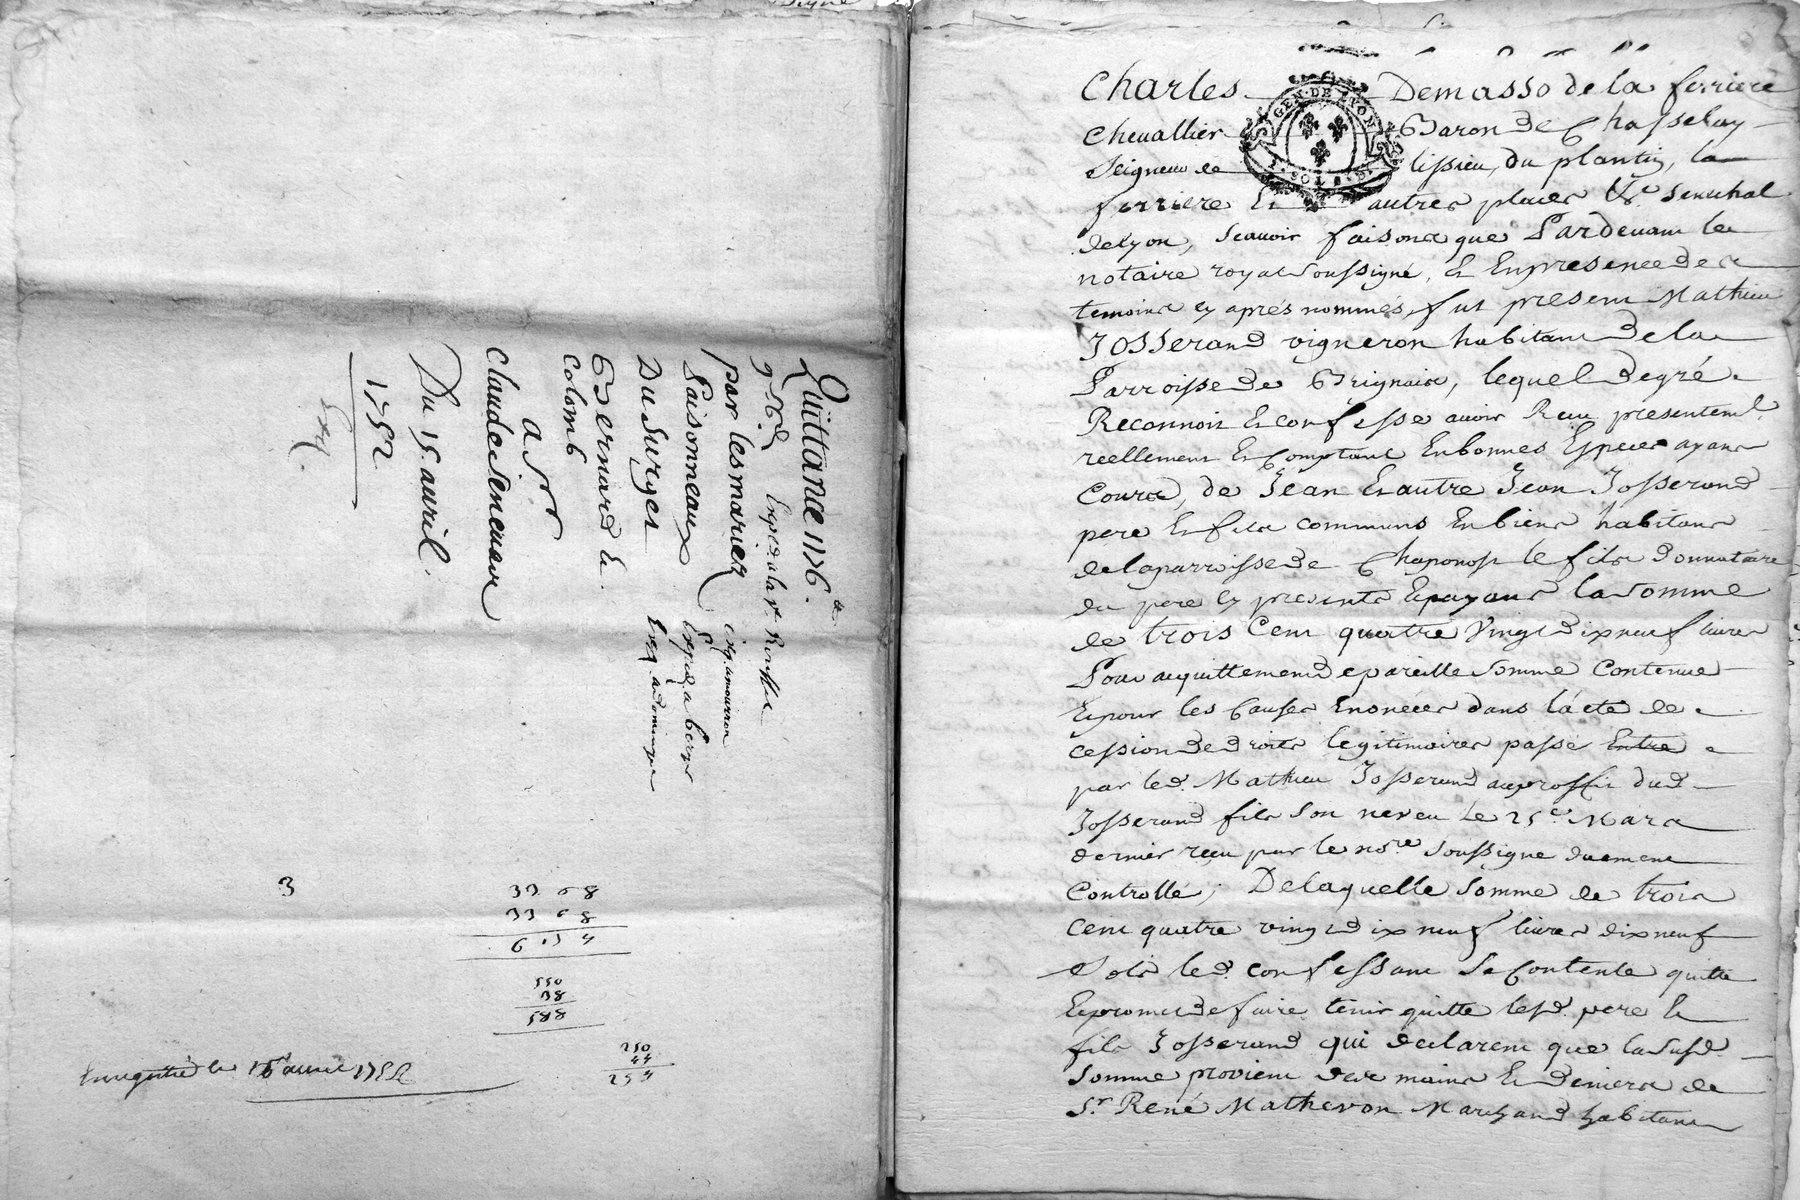 Quittance 1176.lt
9 s 6 d
par les mariez
Laisonneaux
Du Surget
Bernard et
Colomb
a Sr
Claude Seneuau
Du 15. auril.
1752
3
33 0 8
33 0 8
6
550
38
588
250
44
254
Enregistré le 16 auril 1752
GEN. DE LYON
SOLS
Charles Demasso de la ferriere
Cheuallier Baron de Chasselay
Seigneur de lissieu, du plantin, la
ferriere Et autres places &c. Senechal
de Lyon, Scauoir faisons que Pardeuant le
notaire royal Soussigné, Et En presence des
temoins cy aprés nommés, fut present Mathieu
Josserand vigneron habitant de la
Parroisse de Brignais, lequel de gré
Reconnoit Et confesse auoir Recu presentemt.
reellement Et Comptant En bonnes Especes ayant
Cours, de Jean Et autre Jean Josserand
pere Et fils communs En biens habitans
de la parroisse de Chaponost le fils donnataire
du pere cy presents Et payans la Somme
de trois Cent quattre Vingt dix neuf liures
Pour acquittement de pareille Somme Contenue
Et pour les Causes Enoncées dans l'acte de
cession de droits legitimaires passé Entre
par led. Mathieu Josserand au proffit dud.
Josserand fils Son neveu le 25e. Mars
dernier recu par le nore. Soussigné duement
Controllé; De laquelle Somme de trois
Cent quattre vingt dix neuf liures dix neuf
Sols led. confessant Se Contente quitte
Et promet de faire tenir quitte lesd. pere Et
fils Josserand qui declarent que la Susd.
Somme provient des mains Et deniers de
Sr. René Mathevon Marchand habitant